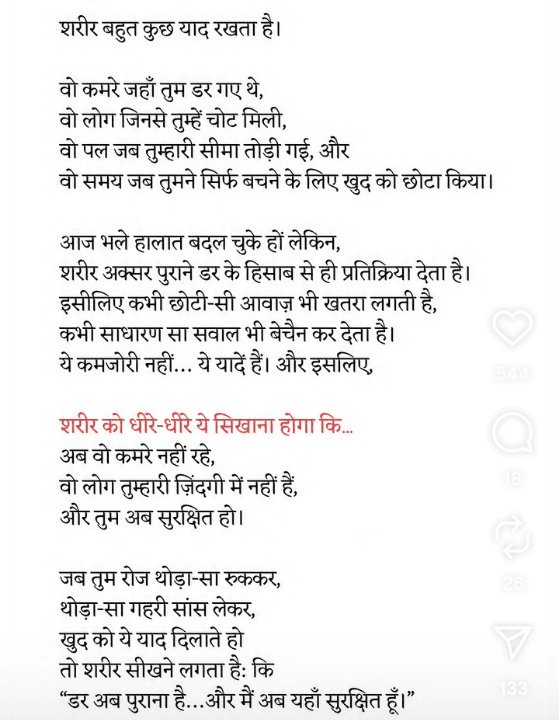 शरीर बहुत कुछ याद रखता है।
वो कमरे जहाँ तुम डर गए थे,
वो लोग जिनसे तुम्हें चोट मिली,
वो पल जब तुम्हारी सीमा तोड़ी गई, और
वो समय जब तुमने सिर्फ बचने के लिए खुद को छोटा किया।
आज भले हालात बदल चुके हों लेकिन,
शरीर अक्सर पुराने डर के हिसाब से ही प्रतिक्रिया देता है।
इसीलिए कभी छोटी-सी आवाज़ भी खतरा लगती है,
कभी साधारण सा सवाल भी बेचैन कर देता है।
ये कमजोरी नहीं... ये यादें हैं। और इसलिए,
शरीर को धीरे-धीरे ये सिखाना होगा कि...
अब वो कमरे नहीं रहे,
वो लोग तुम्हारी ज़िंदगी में नहीं हैं,
और तुम अब सुरक्षित हो।
जब तुम रोज थोड़ा-सा रुककर,
थोड़ा-सा गहरी सांस लेकर,
खुद को ये याद दिलाते हो
तो शरीर सीखने लगता है: कि
“डर अब पुराना है...और मैं अब यहाँ सुरक्षित हूँ।”
544
18
26
133